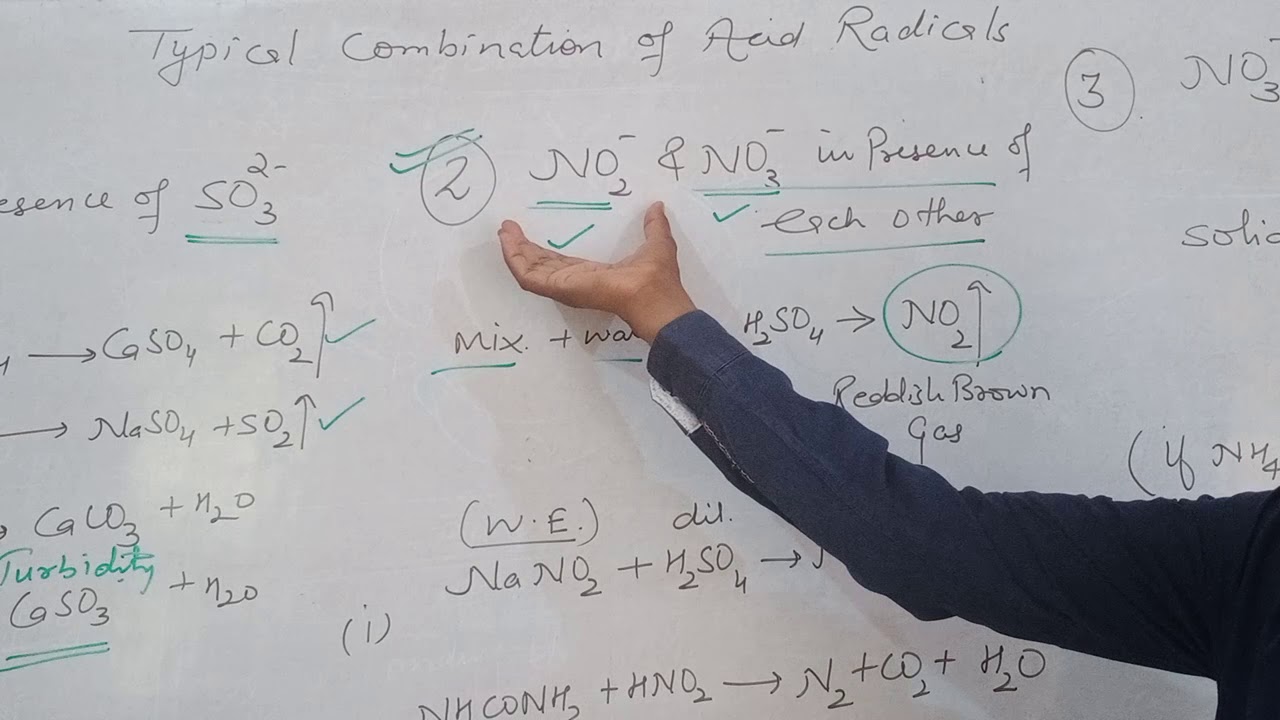 Typical Combination of Acid Radicals
esence of SO₃²⁻
→ CaSO₄ + CO₂↑ ✓
→ NaSO₄ + SO₂↑ ✓
CaCO₃ + H₂O
Turbidity
CaSO₃ + H₂O
② NO₂⁻ & NO₃⁻ in Presence of
each other
Mix. + H₂SO₄ → NO₂↑
Reddish Brown
Gas
(W.E.) dil.
NaNO₂ + H₂SO₄ →
(i)
NHCONH₂ + HNO₂ → N₂ + CO₂ + H₂O
③ NO₃⁻
(if NH₄